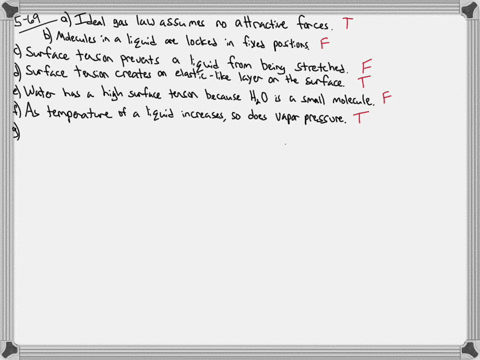 5-69 a) Ideal gas law assumes no attractive forces. T
b) Molecules in a liquid are locked in fixed positions F
c) Surface tension prevents a liquid from being stretched. F
d) Surface tension creates an elastic-like layer on the surface. T
e) Water has a high surface tension because H2O is a small molecule. F
f) As temperature of a liquid increases, so does vapor pressure. T
g)